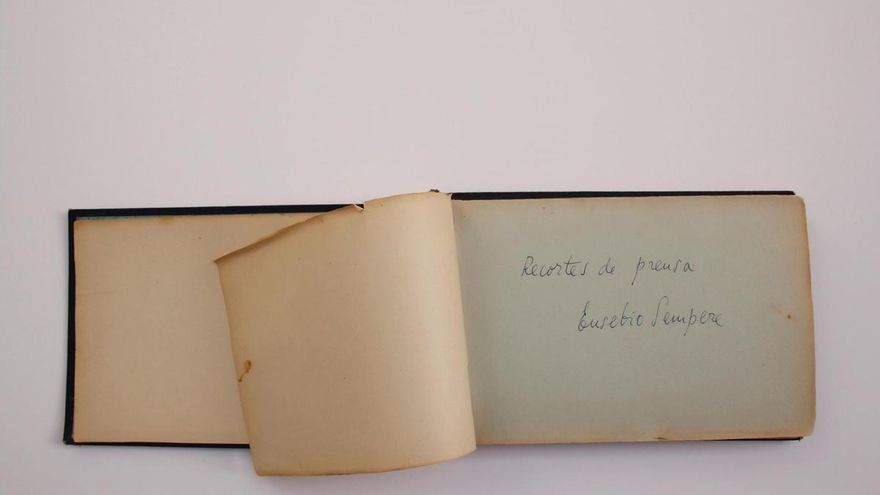 Recortes de prensa
Eusebio Sempere